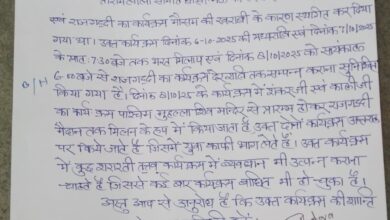 एवं राजगद्दी का कार्यक्रम मौसम की खराबी के कारण स्थगित कर दिया
गया था। उक्त कार्यक्रम दिनांक 6-10-2025 की मध्यरात्रि एवं दिनांक 7/10/2025
के प्रातः 7:30 बजे तक भरत मिलाप एवं दिनांक 8/10/2025 को सायंकाल
6-00 बजे से राजगद्दी का कार्यक्रम देर रात्रि तक सम्पन्न कराना सुनिश्चित
किया गया है। दिनांक 8/10/25 के कार्यक्रम में शंकर जी एवं काली जी
का कार्यक्रम पश्चिम मुहल्ला शिव मन्दिर से प्रारम्भ होकर राजगद्दी
मैदान तक मिलन के रूप में किया जाता है उक्त दोनों कार्यक्रम
पर किये जाते हैं जिसमें युवा काफी भाग लेते हैं। उक्त कार्यक्रम
में कुछ शरारती तत्व कार्यक्रम में व्यवधान भी उत्पन्न करना
चाहते हैं जिससे कई बार कार्यक्रम बाधित भी हो चुका है।
अतः आप से अनुरोध है कि उक्त कार्यक्रम की शान्ति